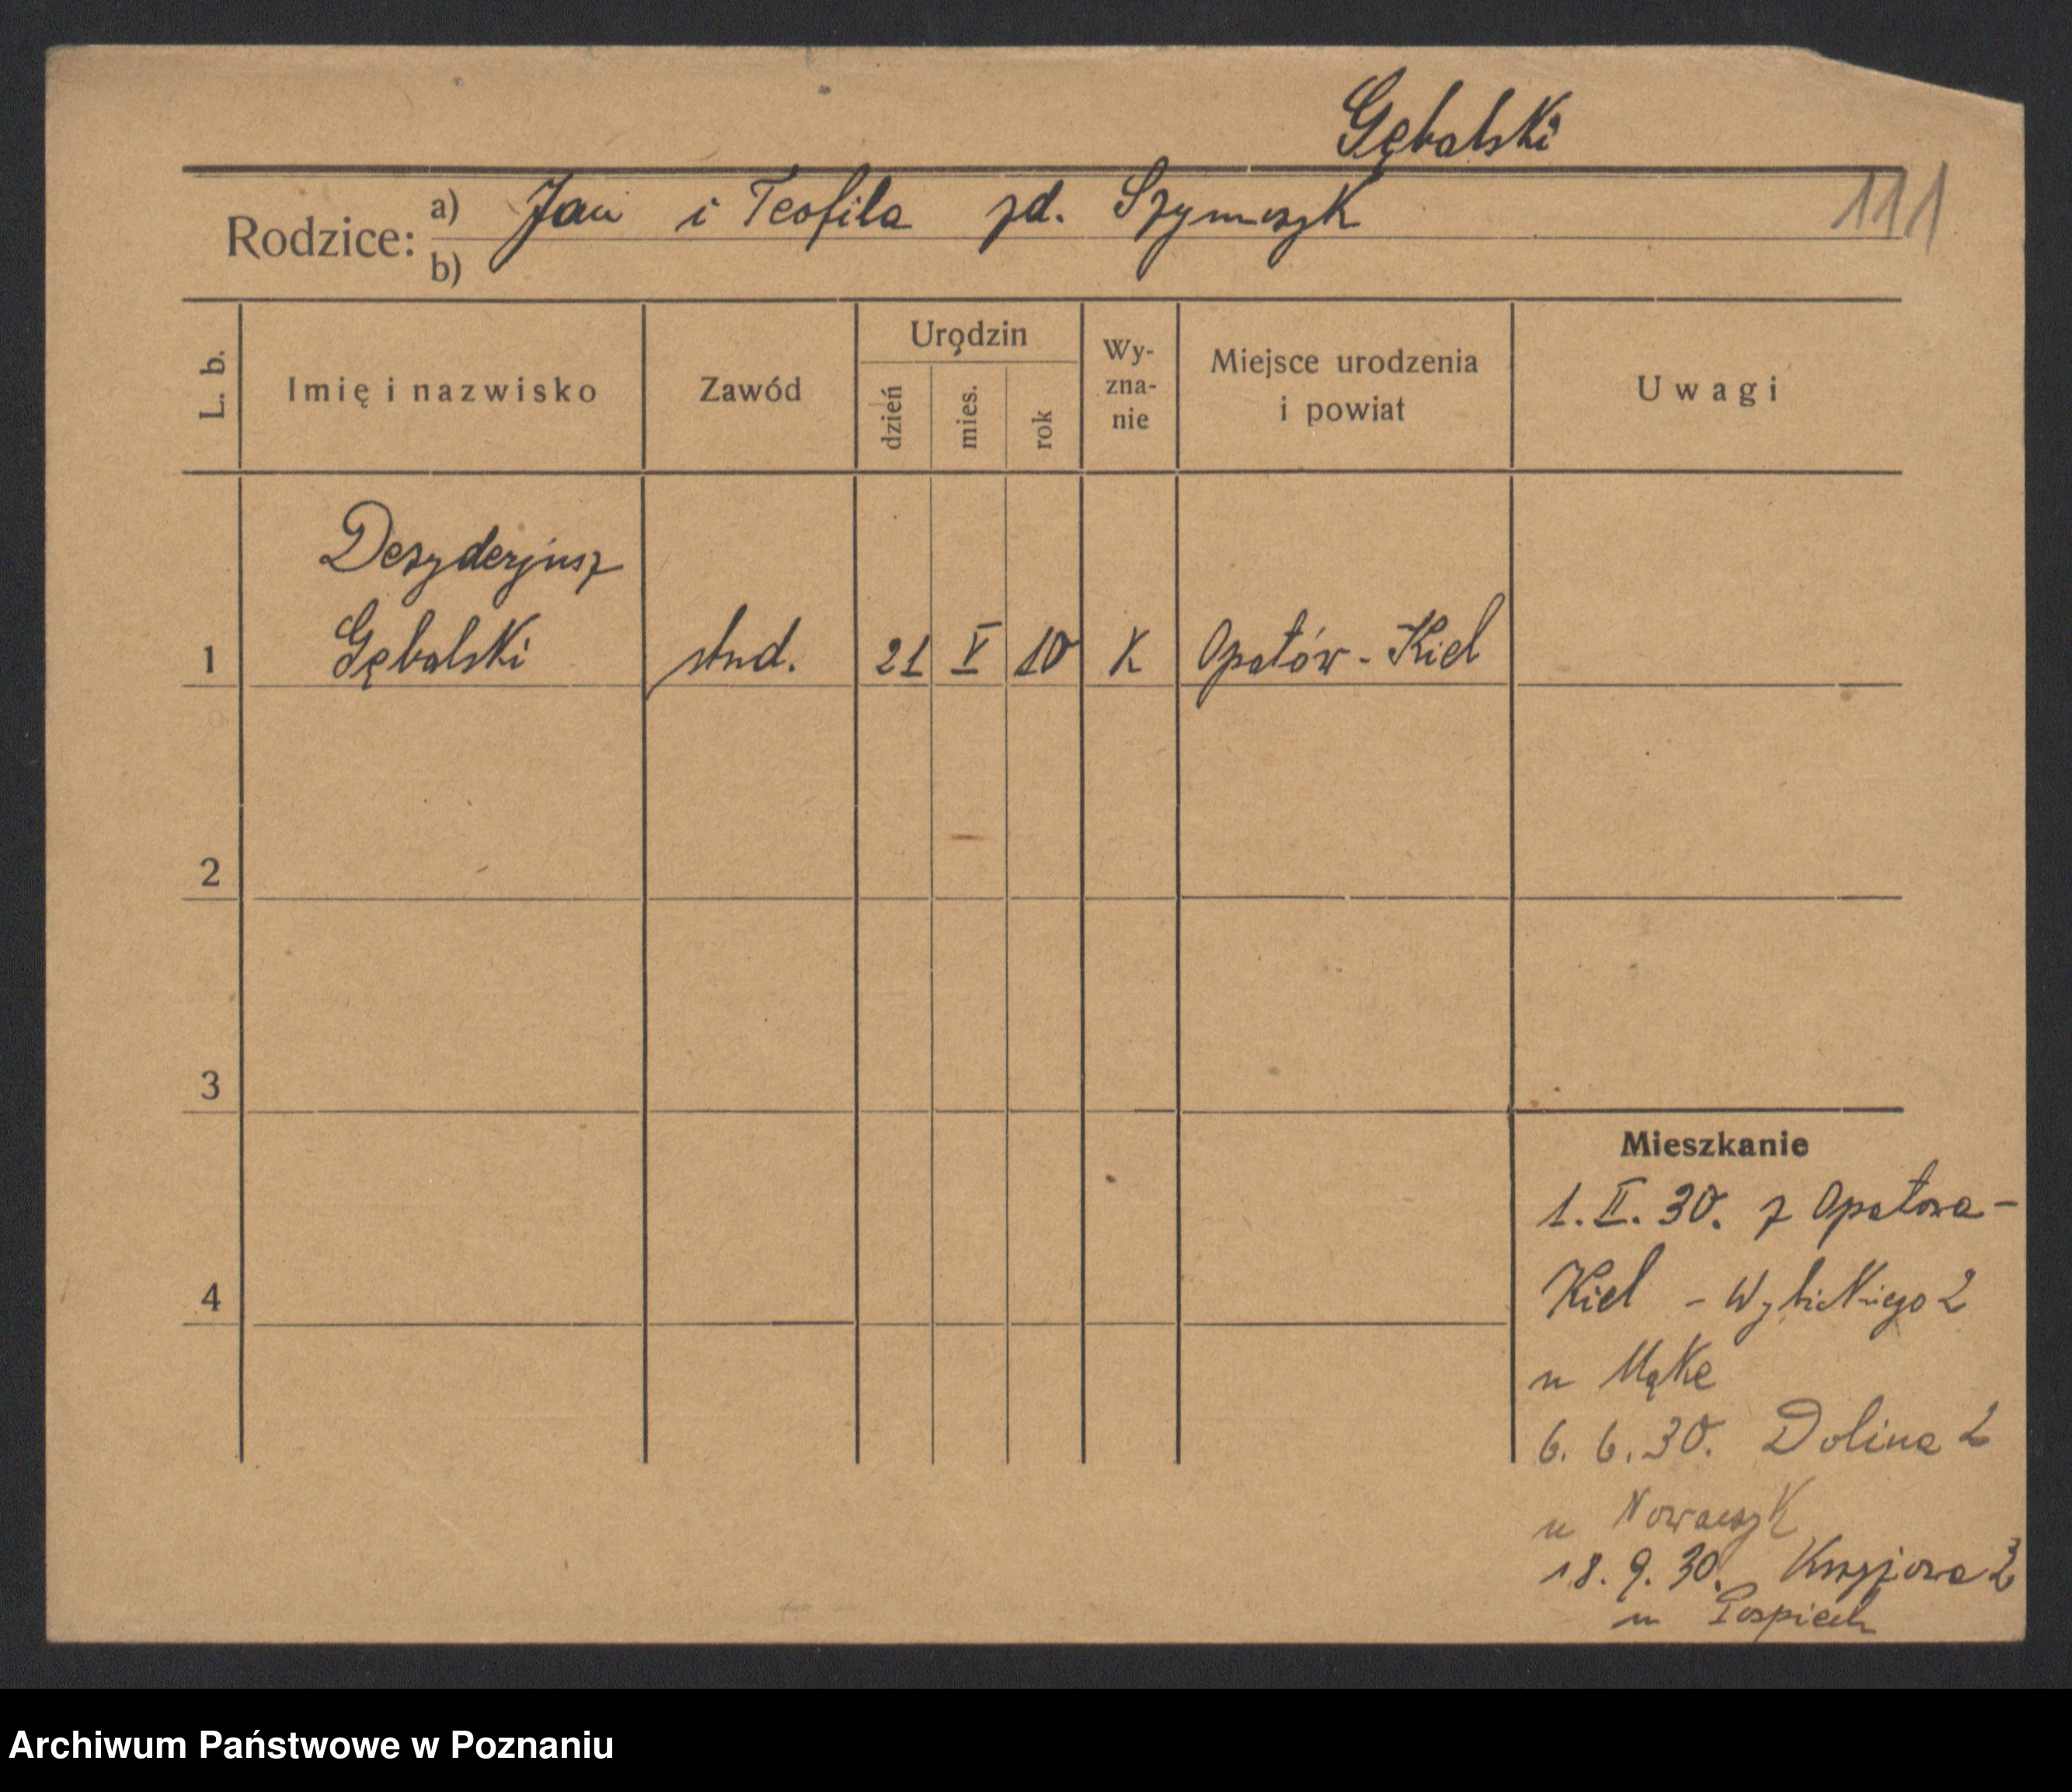 Gębalski
111
Rodzice: a) Jan i Teofila zd. Szymczyk
b)
L. b. Imię i nazwisko Zawód Urodzin dzień mies. rok Wy-zna-nie Miejsce urodzenia i powiat Uwagi
Dezyderjusz
1 Gębalski stud. 21 V 10 K Opatów - Kiel
2
3
Mieszkanie
1. II. 30. z Opatowa -
4 Kiel - Wybickiego 2
u Mąke
6. 6. 30. Dolina 2
u Nowaczyk
18. 9. 30. Krzyżowa
u Pospiech
Archiwum Państwowe w Poznaniu